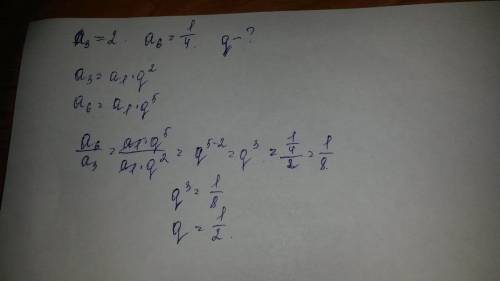 a₃ = 2. a₆ = 1/4. q - ?
a₃ = a₁ · q²
a₆ = a₁ · q⁵
a₆/a₃ = a₁ · q⁵/a₁ · q² = q⁵⁻² = q³ = 1/4/2 = 1/8.
q³ = 1/8
q = 1/2.